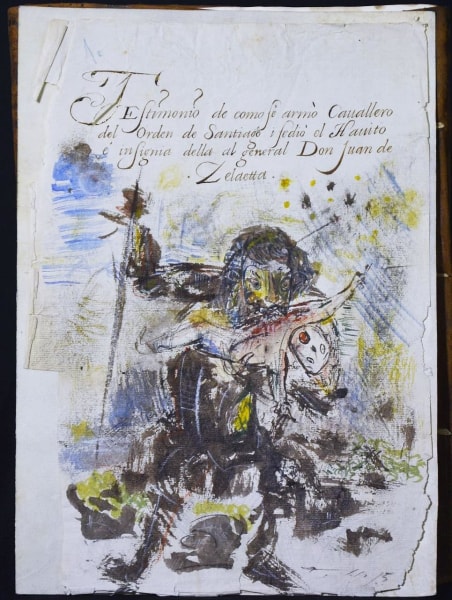 TEstimonio de como sè armò Cauallero
del Orden de Santiago i sedió el Hauito
é insignia della al general Don Juan de
· Zelaetta ·